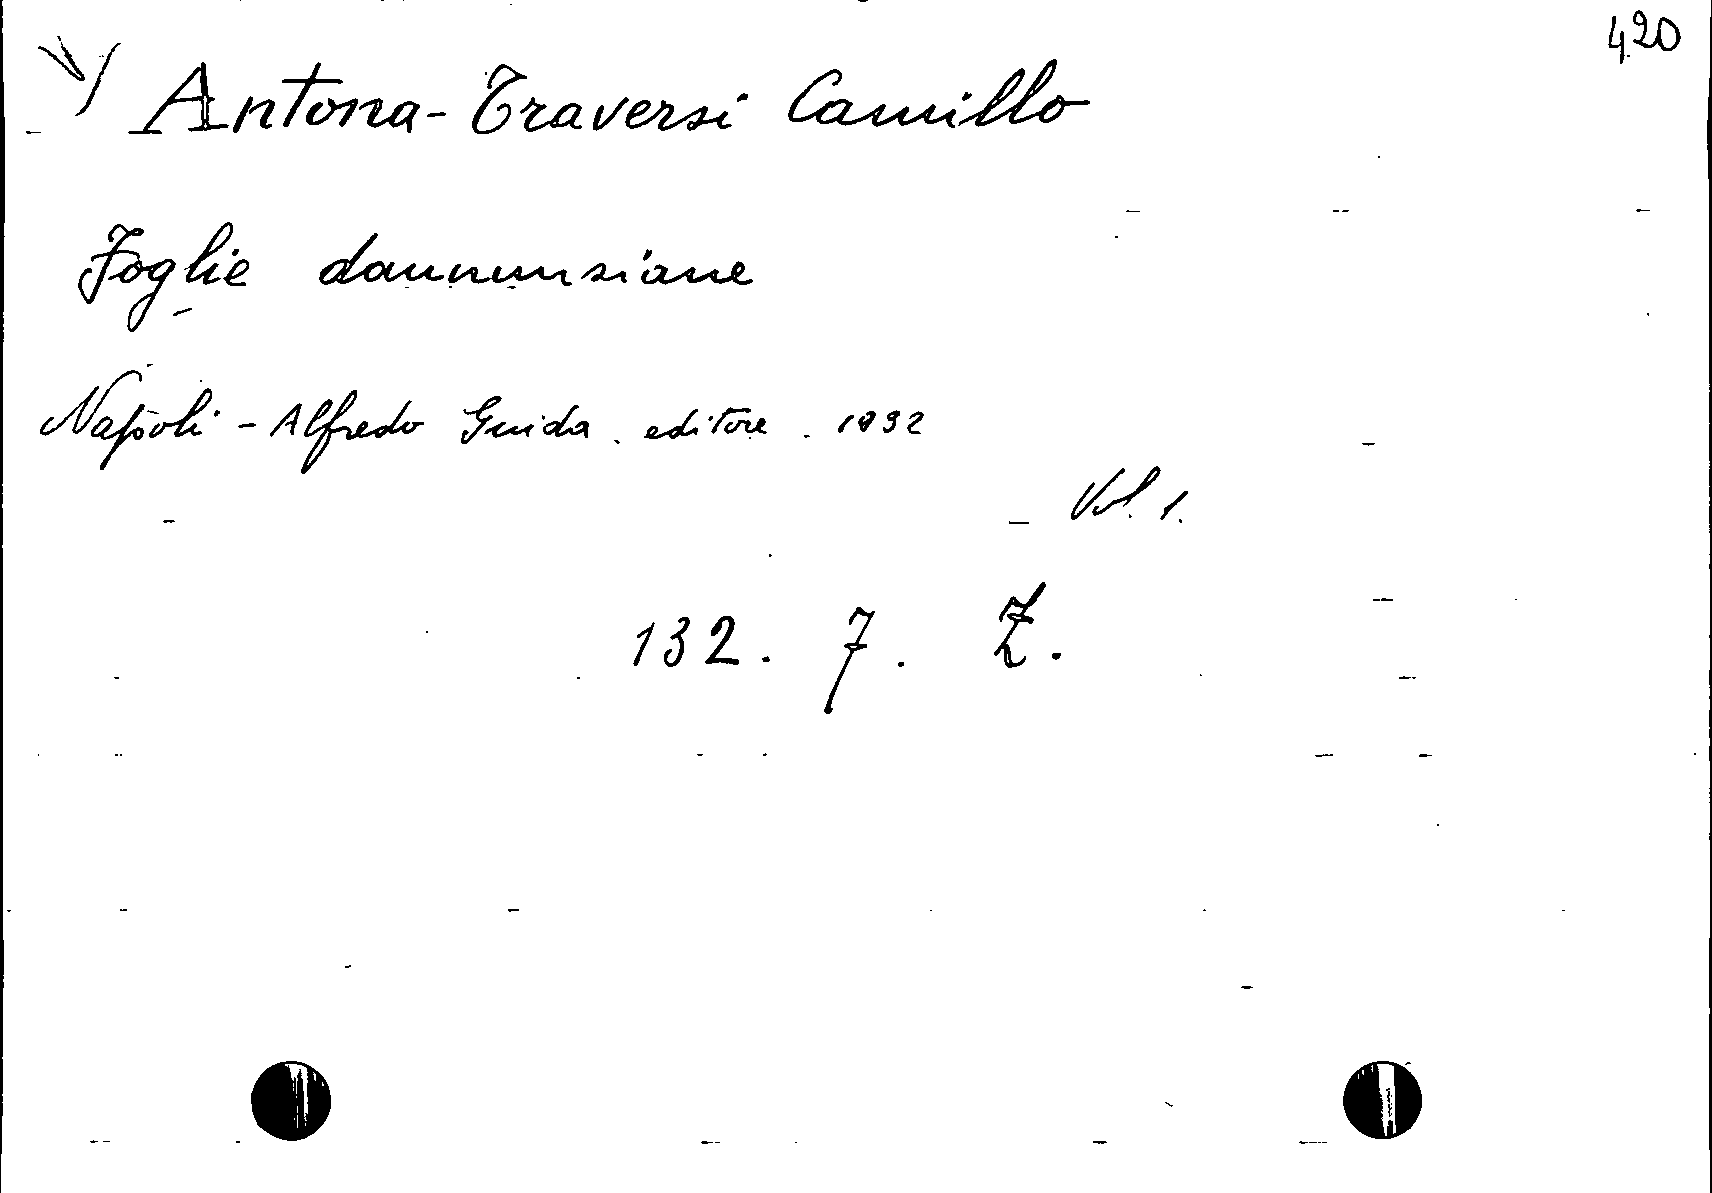 420
Antona-Traversi Camillo
Foglie dannunziane
Napoli - Alfredo Guida. editore. 1932
Vol. 1.
132. 7. Z.